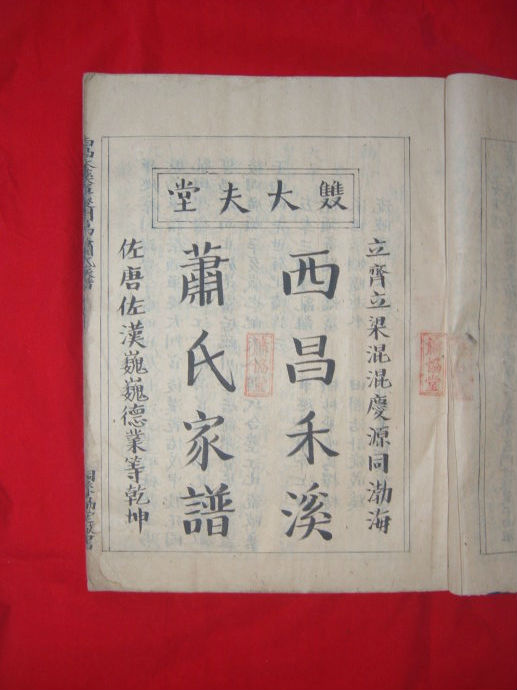 雙大夫堂
立齊立梁混混慶源同渤海
西昌禾溪
蕭氏家譜
佐唐佐漢巍巍德業等乾坤